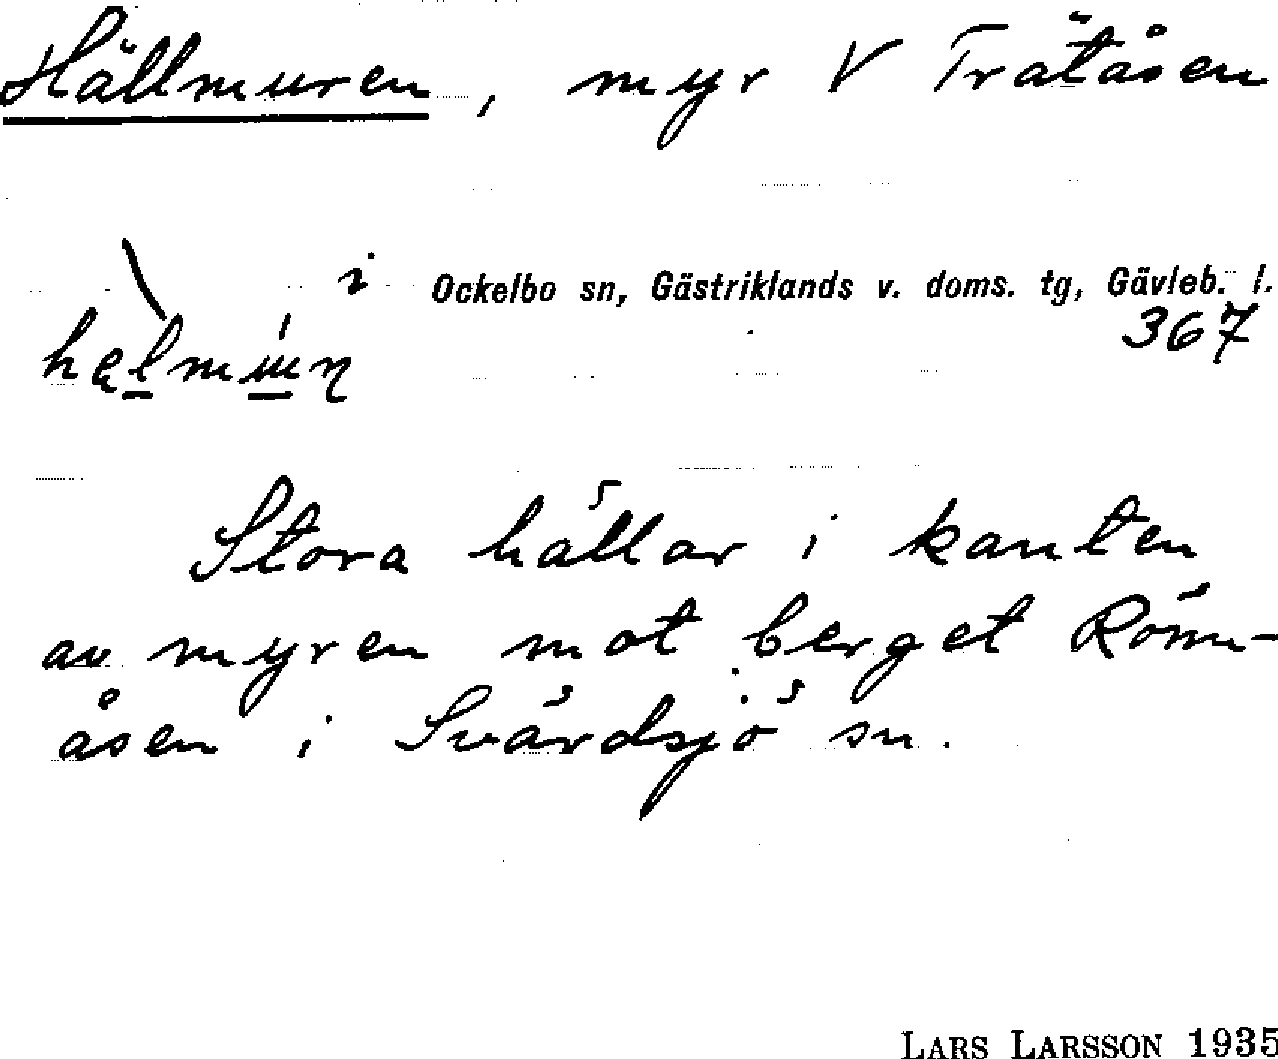 Hällmuren, myr V Trätåsen
i Ockelbo sn, Gästriklands v. doms. tg, Gävleb. l.
367
Stora hällar i kanten
av myren mot berget Röm-
åsen i Svärdsjö sn.
LARS LARSSON 1935